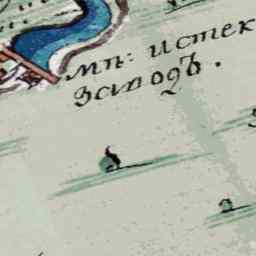 мп: истек
заводъ.